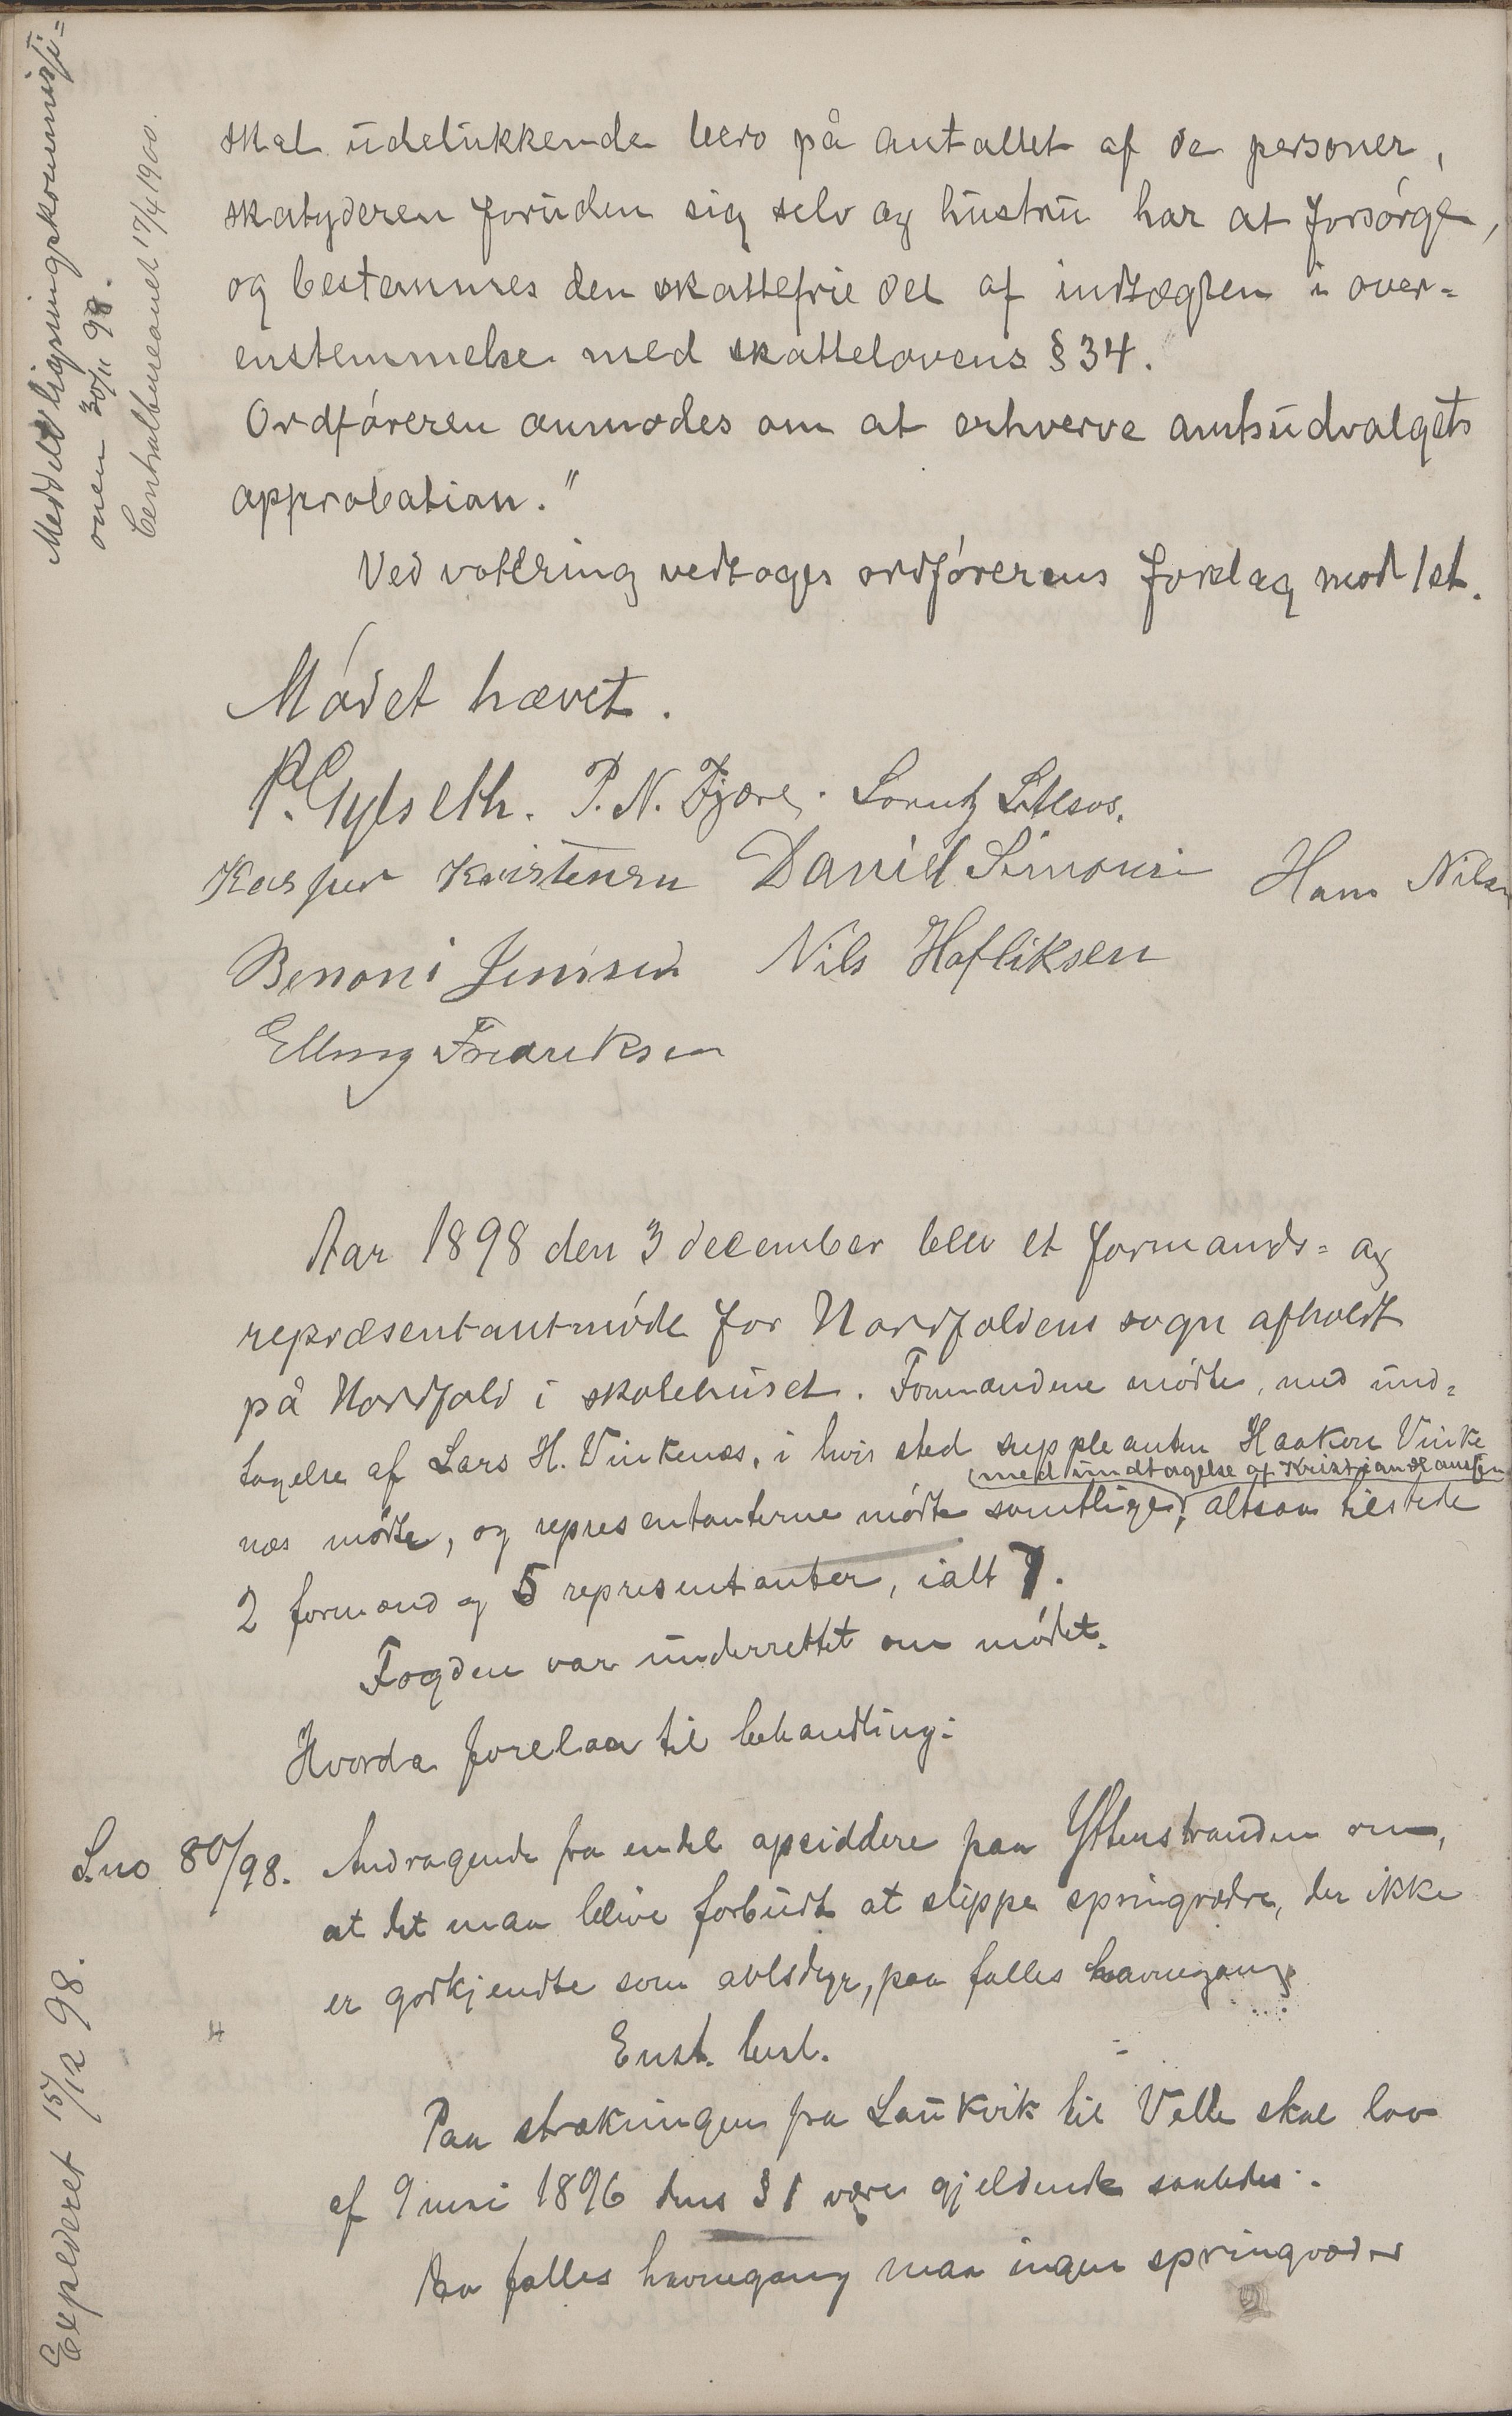 Meddelt ligningskommissi-
onen 30/11 98.
Centralbureauet 17/4 1900.
skal udelukkende bero på antallet af de personer,
skatyderen foruden sig selv og hustru har at forsørge,
og bestemmes den skattefrie del af indtægten i over-
enstemmelse med skattelovens § 34.
Ordføreren anmodes om at erhverve amtsudvalgets
approbation."
Ved votering vedtoges ordførerens forslag mod 1 st.
Mødet hævet.
P. Gylseth. P. N. Fjære. Lorntz
Kasper Kristensen Daniel Simons Hans Nilsen
Benoni Jensen Nils Hafliksen
Elling Fredreksen
Aar 1898 den 3 december blev et formands- og
repræsentantmøde for Nordfoldens sogn afholdt
på Nordfold i skolehuset. Formændene mødte, med und-
tagelse af Lars H. Vinkenæs, i hvis sted suppleanten Haakon Vinke
(med undtagelse af Kristian Hanssen
næs mødte, og representanterne mødte samtlige; altsaa tilstede
2 formænd og 5 representanter, ialt 7.
Fogden var underrettet om mødet.
Hvorda forelaa til behandling:
S.no 80/98. Andragende fra endel opsiddere paa Ytterstranden om,
at det maa blive forbudt at slippe springvædre, der ikke
er godkjendte som avlsdyr, paa fælles havnegang.
Enst. besl.
Paa strækningen fra Laukvik til Valle skal lov
af 9 juni 1896 dens § 1 være gjeldende saaledes:
Paa fælles havnegang maa ingen springvæder
Expederet 15/12 98.